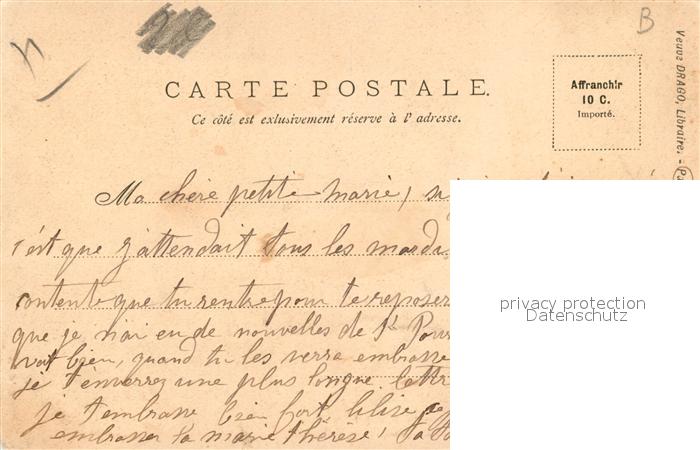 B
CARTE POSTALE.
Ce côté est exlusivement réserve à l'adresse.
Affranchir
10 C.
Importé.
Veuve DRAGO, Libraire. -
Ma chère petite marie, si
c'est que j'attendait tous les mardi
contente que tu rentre pour te reposer
que je n'ai eu de nouvelles de St Pour
vat bien, quand tu les verra embrasse
je t'enverrez une plus longue lettr
je t'embrasse bien fort
embrasser ta marie thérèse! Ta
privacy protection
Datenschutz